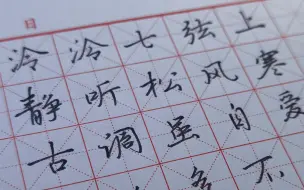 日
泠泠七弦上
静听松风寒
古调虽自爱
多不